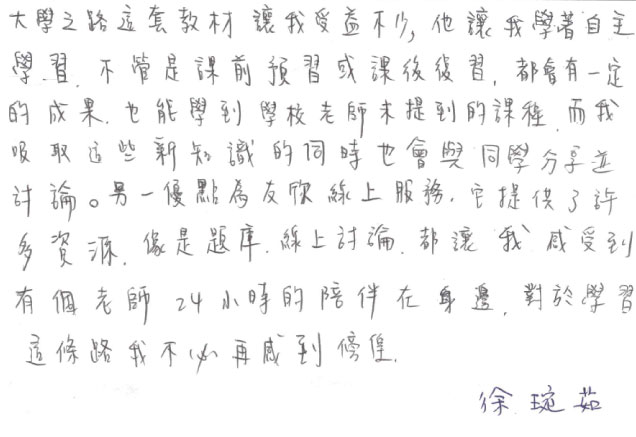 大學之路這套教材讓我受益不少,他讓我學著自主
學習.不管是課前預習或課後復習,都會有一定
的成果.也能學到學校老師未提到的課程.而我
吸取這些新知識的同時也會與同學分享並
討論。另一優點為友欣線上服務.它提供了許
多資源.像是題庫.線上討論.都讓我感受到
有個老師24小時的陪伴在身邊.對於學習
這條路我不必再感到徬徨.
徐琬茹